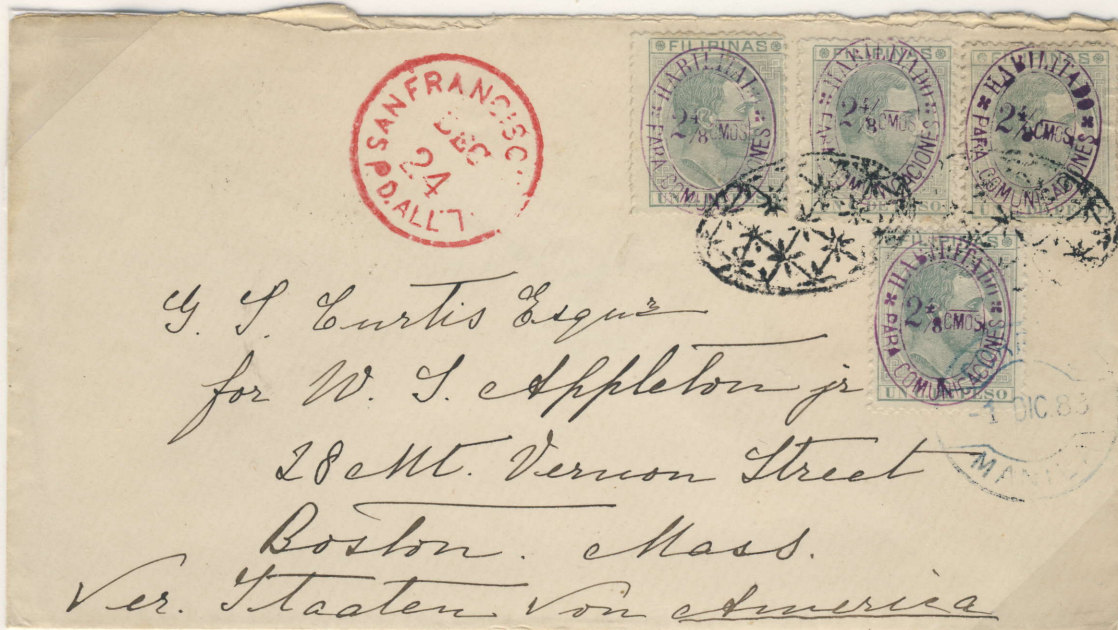 SAN FRANCISC
DEC
24
P D. ALL'
FILIPINAS
HABILITA
2 4/8 CMOS
PARA COMUNICACIONES
UN PESO
FILIPINAS
HABILITADO
2 4/8 CMOS
PARA COMUNICACIONES
UN DE PESO
FILIPINAS
HABILITADO
2 4/8 CMOS
PARA COMUNICACIONES
UN PESO
FILIPINAS
HABILITADO
2 4/8 CMOS
PARA COMUNICACIONES
UN PESO
1 DIC. 8
MANI
G. S. Curtis Esqur
for W. S. Appleton jr
28 Mt. Vernon Street
Boston. Mass.
Ver. Staaten von America